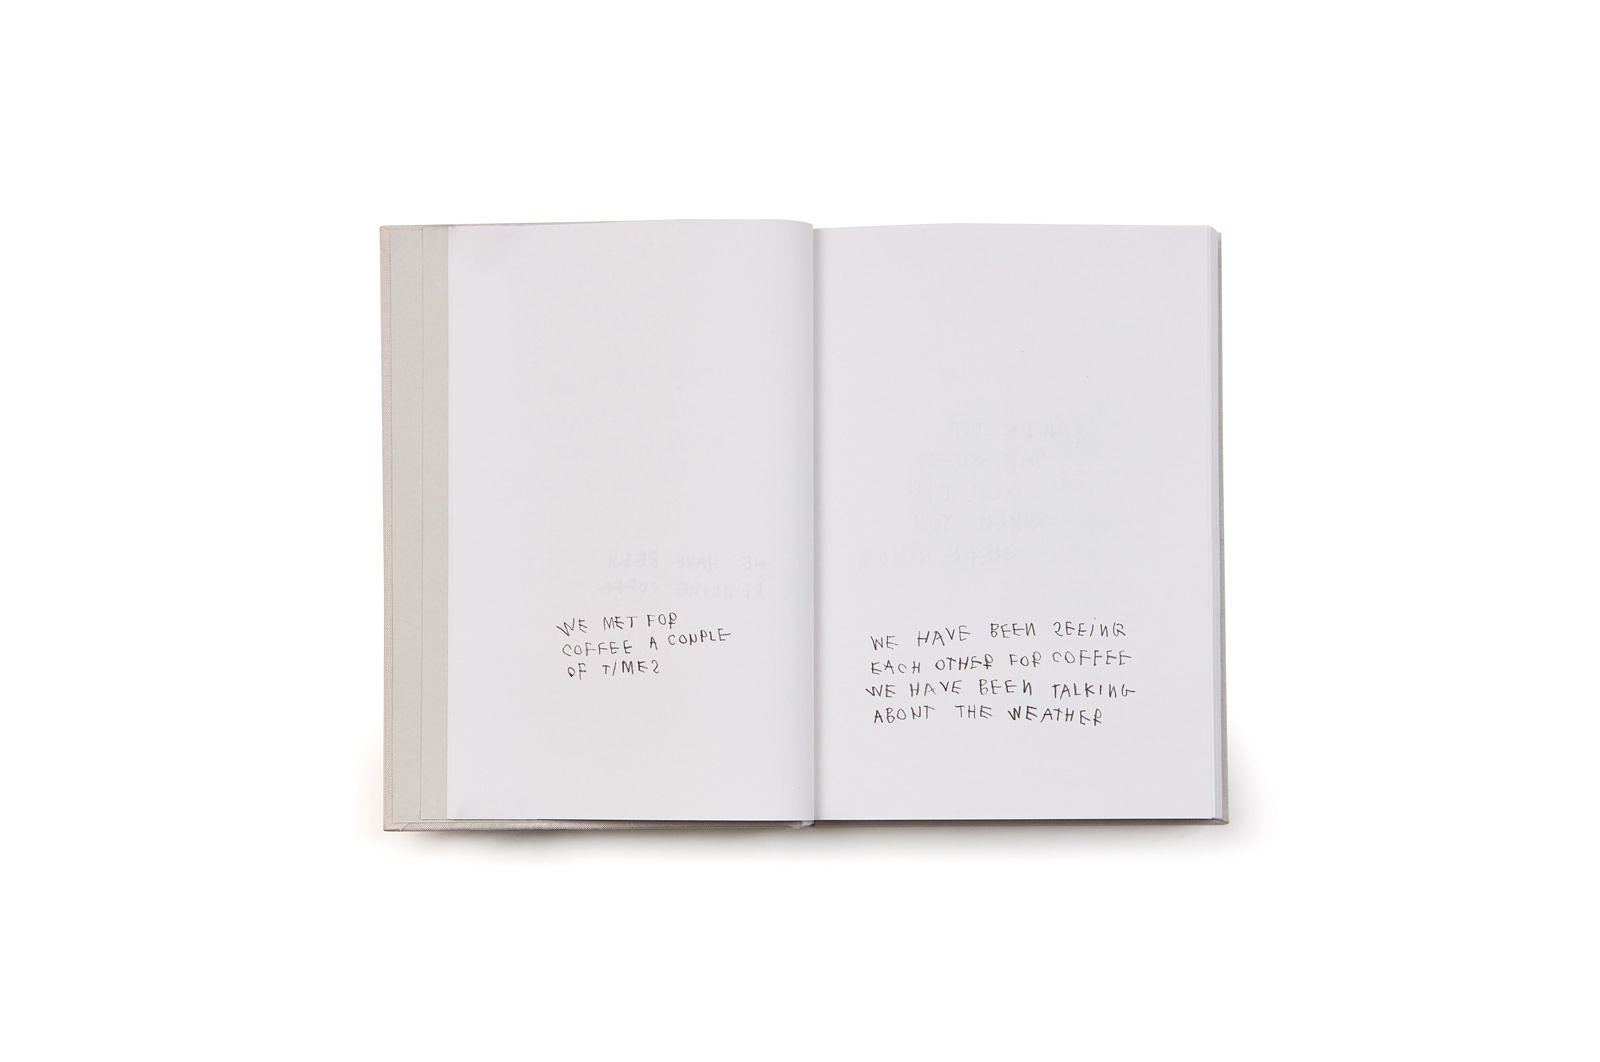 WE HAVE BEEN
DRINKING COFFEE
WE MET FOR
COFFEE A COUPLE
OF TIMES
WE HAVE BEEN SEEING
EACH OTHER FOR COFFEE
WE HAVE BEEN TALKING
ABOUT THE WEATHER